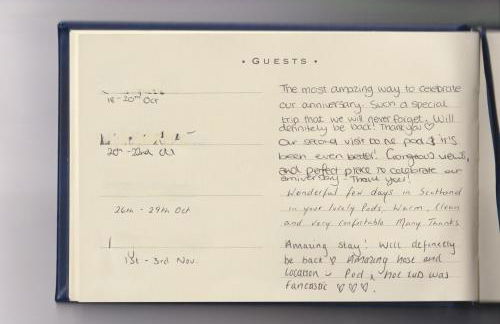 • GUESTS •
18 - 20th Oct
The most amazing way to celebrate
our anniversary. Such a special
trip that we will never forget. Will
definitely be back! Thank you ♡
20th - 22nd Oct
Our second visit to the pod & it's
been even better! Gorgeous views,
and perfect place to celebrate our
anniversary! Thank you!
26th - 29th Oct
Wonderful few days in Scotland
in your lovely Pods, Warm, Clean
and very comfortable. Many Thanks
1st - 3rd Nov.
Amazing stay! Will definitely
be back ♡ Amazing host and
location Pod & hot tub was
fantastic ♡ ♡ ♡.